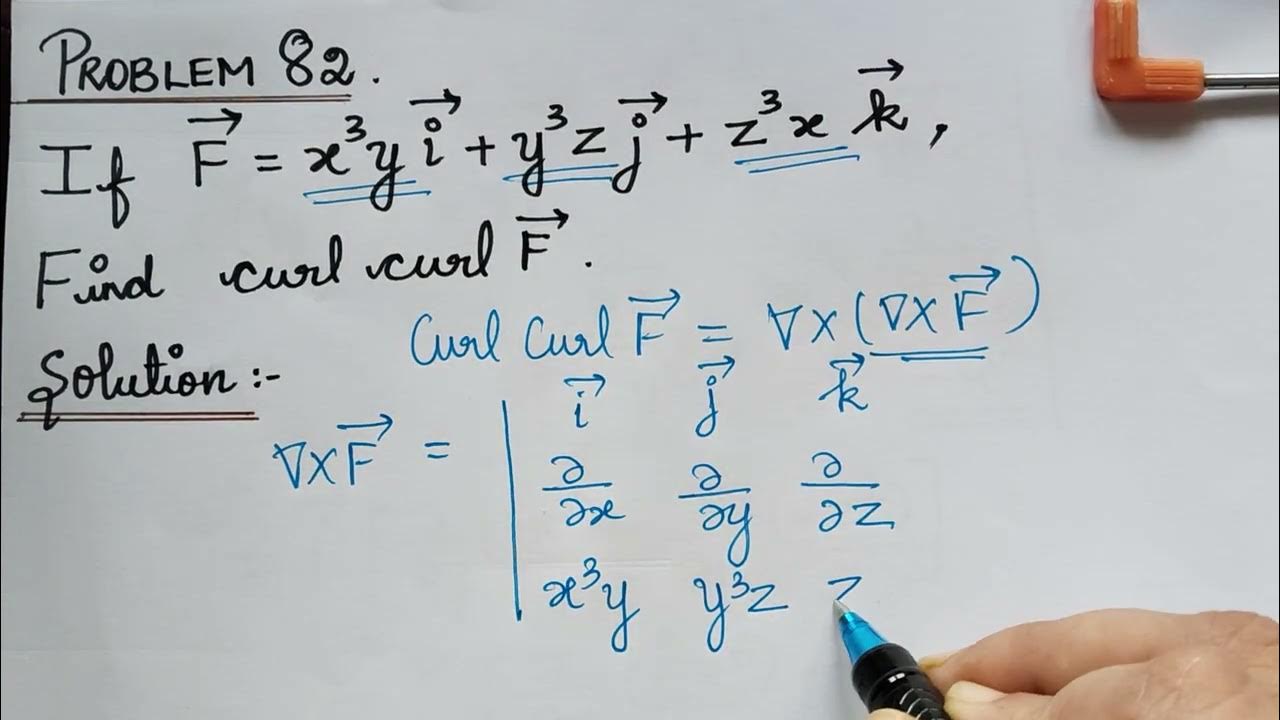 PROBLEM 82.
If F⃗ = x³y i⃗ + y³z j⃗ + z³x k⃗,
Find curl curl F⃗.
Solution :-
Curl Curl F⃗ = ∇×(∇×F⃗)
i⃗ j⃗ k⃗
∇×F⃗ = | ∂/∂x ∂/∂y ∂/∂z
x³y y³z z